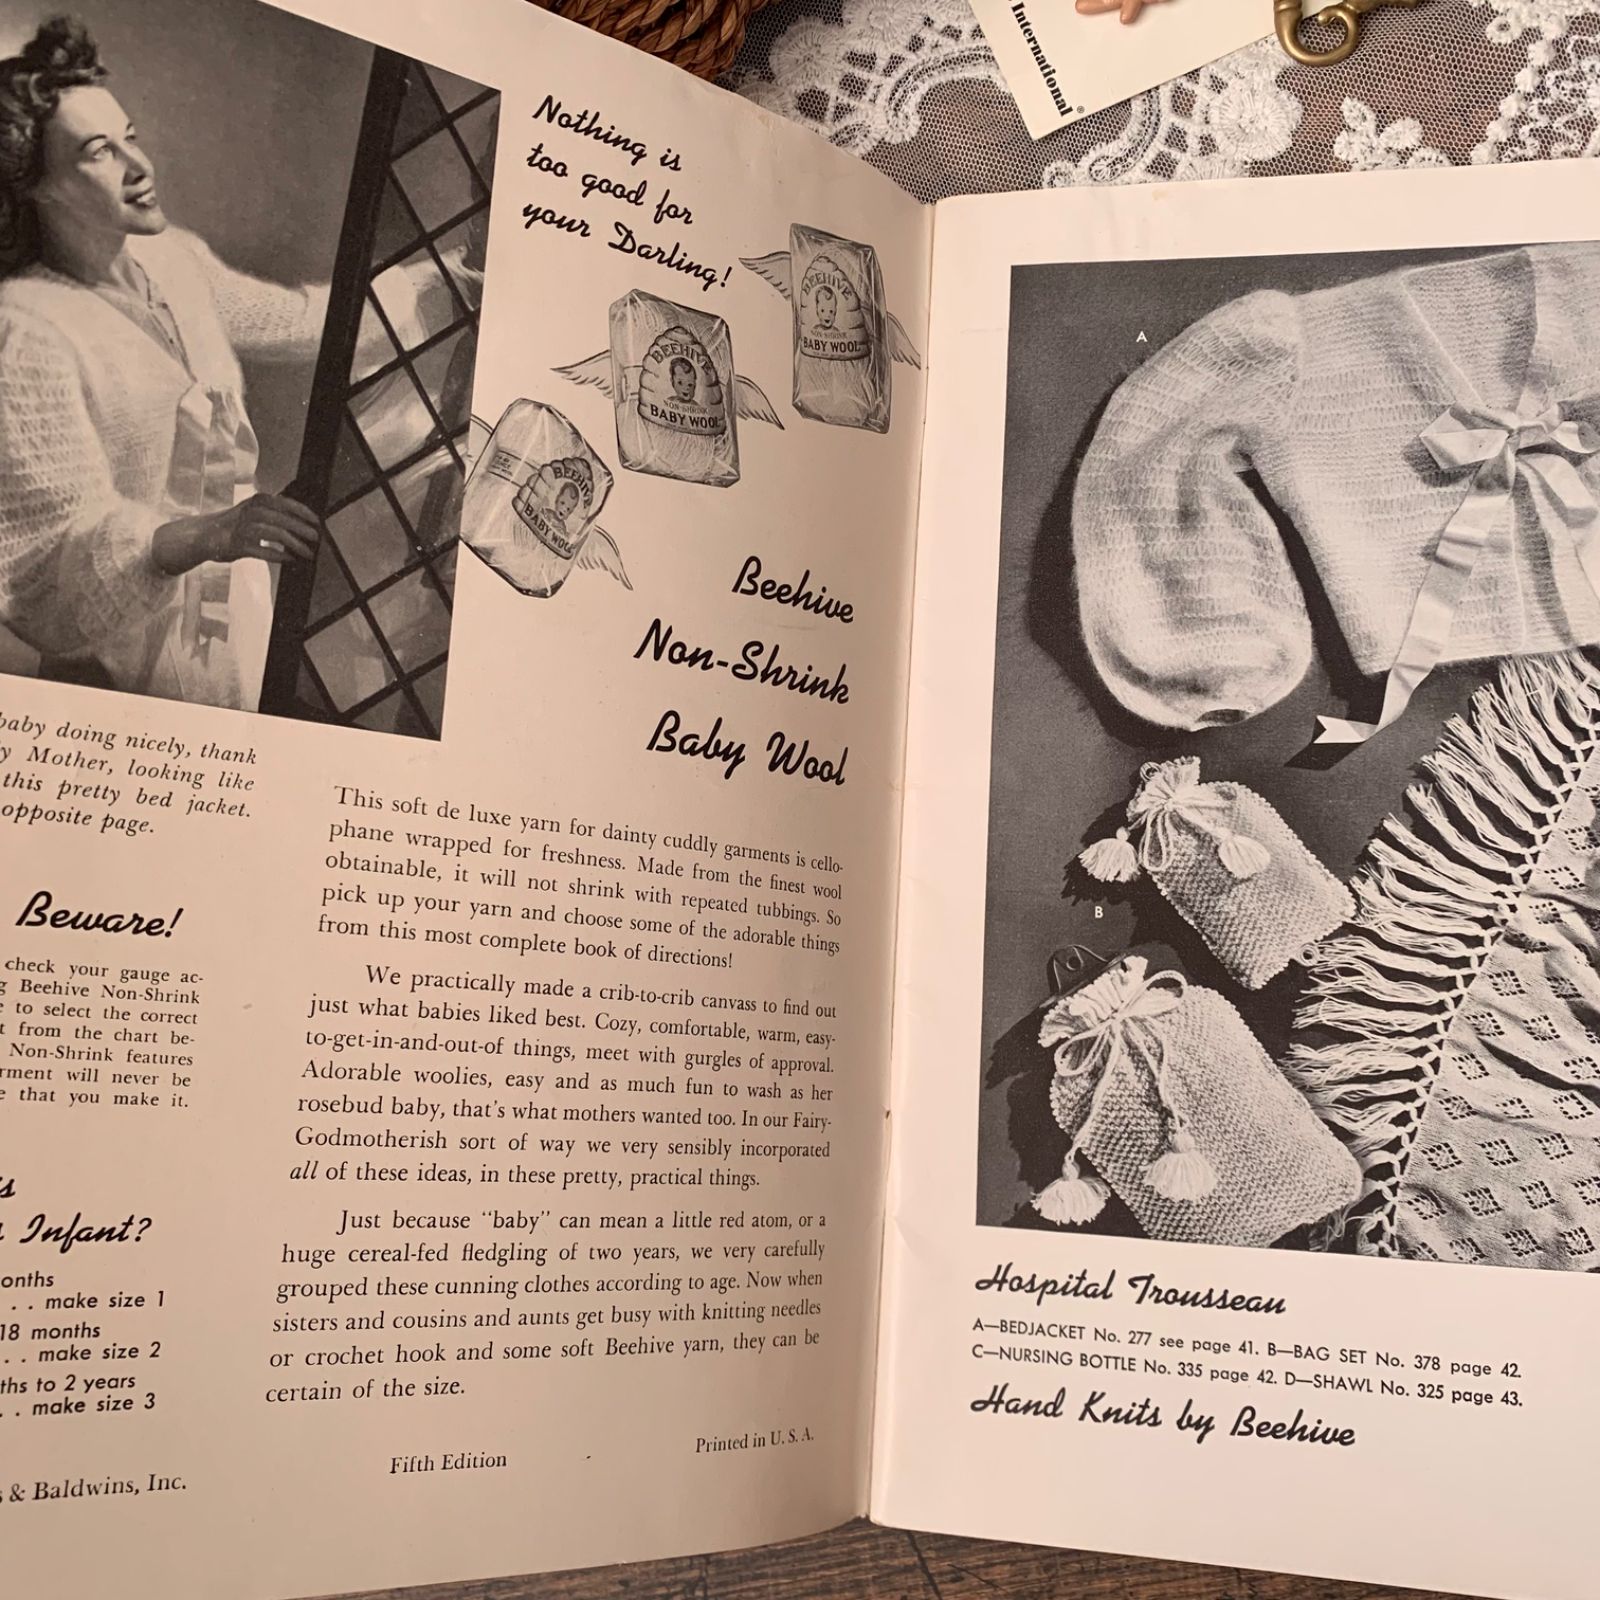 International
Nothing is
too good for
your Darling!
BEEHIVE
NON-SHRINK
BABY WOOL
BEEHIVE
NON-SHRINK
BABY WOOL
BEEHIVE
BABY WOOL
Beehive
Non-Shrink
Baby Wool
baby doing nicely, thank
Mother, looking like
this pretty bed jacket.
opposite page.
Beware!
check your gauge ac-
Beehive Non-Shrink
to select the correct
from the chart be-
Non-Shrink features
will never be
that you make it.
Infant?
. . make size 1
18 months
. . make size 2
to 2 years
. . make size 3
& Baldwins, Inc.
This soft de luxe yarn for dainty cuddly garments is cello-
phane wrapped for freshness. Made from the finest wool
obtainable, it will not shrink with repeated tubbings. So
pick up your yarn and choose some of the adorable things
from this most complete book of directions!
We practically made a crib-to-crib canvass to find out
just what babies liked best. Cozy, comfortable, warm, easy-
to-get-in-and-out-of things, meet with gurgles of approval.
Adorable woolies, easy and as much fun to wash as her
rosebud baby, that's what mothers wanted too. In our Fairy-
Godmotherish sort of way we very sensibly incorporated
all of these ideas, in these pretty, practical things.
Just because "baby" can mean a little red atom, or a
huge cereal-fed fledgling of two years, we very carefully
grouped these cunning clothes according to age. Now when
sisters and cousins and aunts get busy with knitting needles
or crochet hook and some soft Beehive yarn, they can be
certain of the size.
Fifth Edition
Printed in U. S. A.
A
B
Hospital Trousseau
A—BEDJACKET No. 277 see page 41. B—BAG SET No. 378 page 42.
C—NURSING BOTTLE No. 335 page 42. D—SHAWL No. 325 page 43.
Hand Knits by Beehive